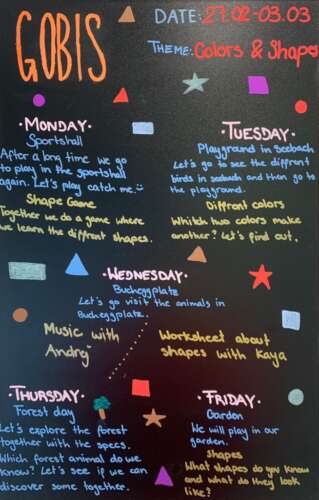 GOBIS
DATE: 27.02-03.03
THEME: Colors & Shap
·MONDAY·
Sportshall
After a long time we go
to play in the sportshall
again. Let's play catch me.
Shape Game
Together we do a game where
we learn the diffrent shapes.
·TUESDAY·
Playground in Seebach
Let's go to see the diffrent
birds in seebach and then go to
the playground.
Diffrent colors
Whitch two colors make
another? Let's find out.
·WEDNESDAY·
Bucheggplatz
Let's go visit the animals in
Bucheggplatz.
Music with
Andrej
Worksheet about
shapes with Kaya
·THURSDAY·
Forest day
Let's explore the forest
together with the specs.
Which forest animal do we
know? Let's see if we can
discover some together.
·FRIDAY·
Garden
We will play in our
garden.
Shapes
What shapes do you know
and what do they look
like?